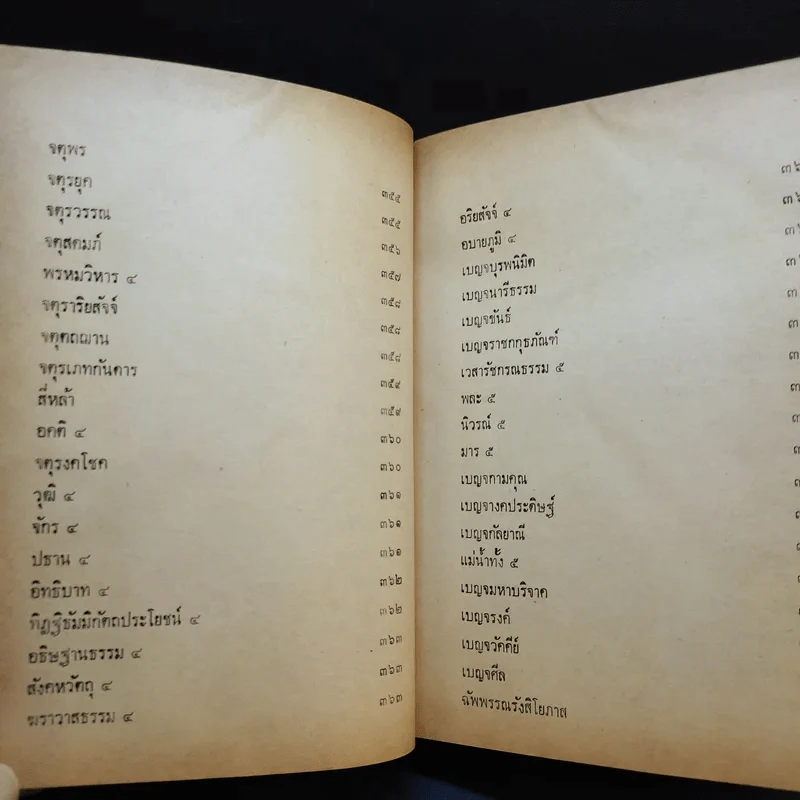 จตุพร ๓๕๕
จตุรยุค ๓๕๕
จตุรวรรณ ๓๕๖
จตุสดมภ์ ๓๕๗
พรหมวิหาร ๔ ๓๕๘
จตุราริยสัจจ์ ๓๕๘
จตุตถฌาน ๓๕๘
จตุรเภทกันดาร ๓๕๙
สี่หล้า ๓๕๙
อคติ ๔ ๓๖๐
จตุรงคโชค ๓๖๐
วุฒิ ๔ ๓๖๑
จักร ๔ ๓๖๑
ปธาน ๔ ๓๖๑
อิทธิบาท ๔ ๓๖๒
ทิฏฐิธัมมิกัตถประโยชน์ ๔ ๓๖๒
อธิษฐานธรรม ๔ ๓๖๓
สังคหวัตถุ ๔ ๓๖๓
ฆราวาสธรรม ๔ ๓๖๓
อริยสัจจ์ ๔
อบายภูมิ ๔
เบญจบุรพนิมิต
เบญจนารีธรรม
เบญจขันธ์
เบญจราชกกุธภัณฑ์
เวสารัชกรณธรรม ๕
พละ ๕
นิวรณ์ ๕
มาร ๕
เบญจกามคุณ
เบญจางคประดิษฐ์
เบญจกัลยาณี
แม่น้ำทั้ง ๕
เบญจมหาบริจาค
เบญจรงค์
เบญจวัคคีย์
เบญจศีล
ฉัพพรรณรังสิโยภาส